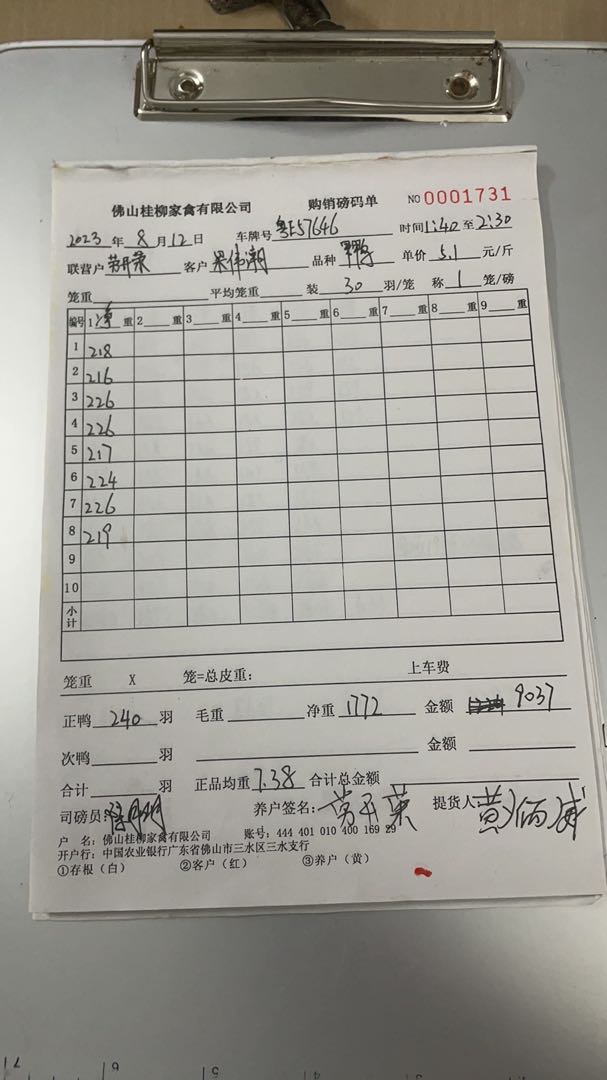 佛山桂柳家禽有限公司 购销磅码单 NO 0001731
2023 年 8 月 12 日 车牌号 粤E57646 时间 1:40 至 2:30
联营户 客户 品种 单价 5.1 元/斤
笼重 平均笼重 装 30 羽/笼 称 1 笼/磅
编号 1 净 重 2 重 3 重 4 重 5 重 6 重 7 重 8 重 9 重
1 218
2 216
3 226
4 226
5 217
6 224
7 226
8 219
9
10
小计
笼重 X 笼=总皮重: 上车费
正鸭 240 羽 毛重 净重 1772 金额 9037
次鸭 羽 金额
合计 羽 正品均重 7.38 合计总金额
司磅员: 养户签名: 提货人:
户 名: 佛山桂柳家禽有限公司 账号: 444 401 010 400 169 29
开户行: 中国农业银行广东省佛山市三水区三水支行
①存根(白) ②客户(红) ③养户(黄)